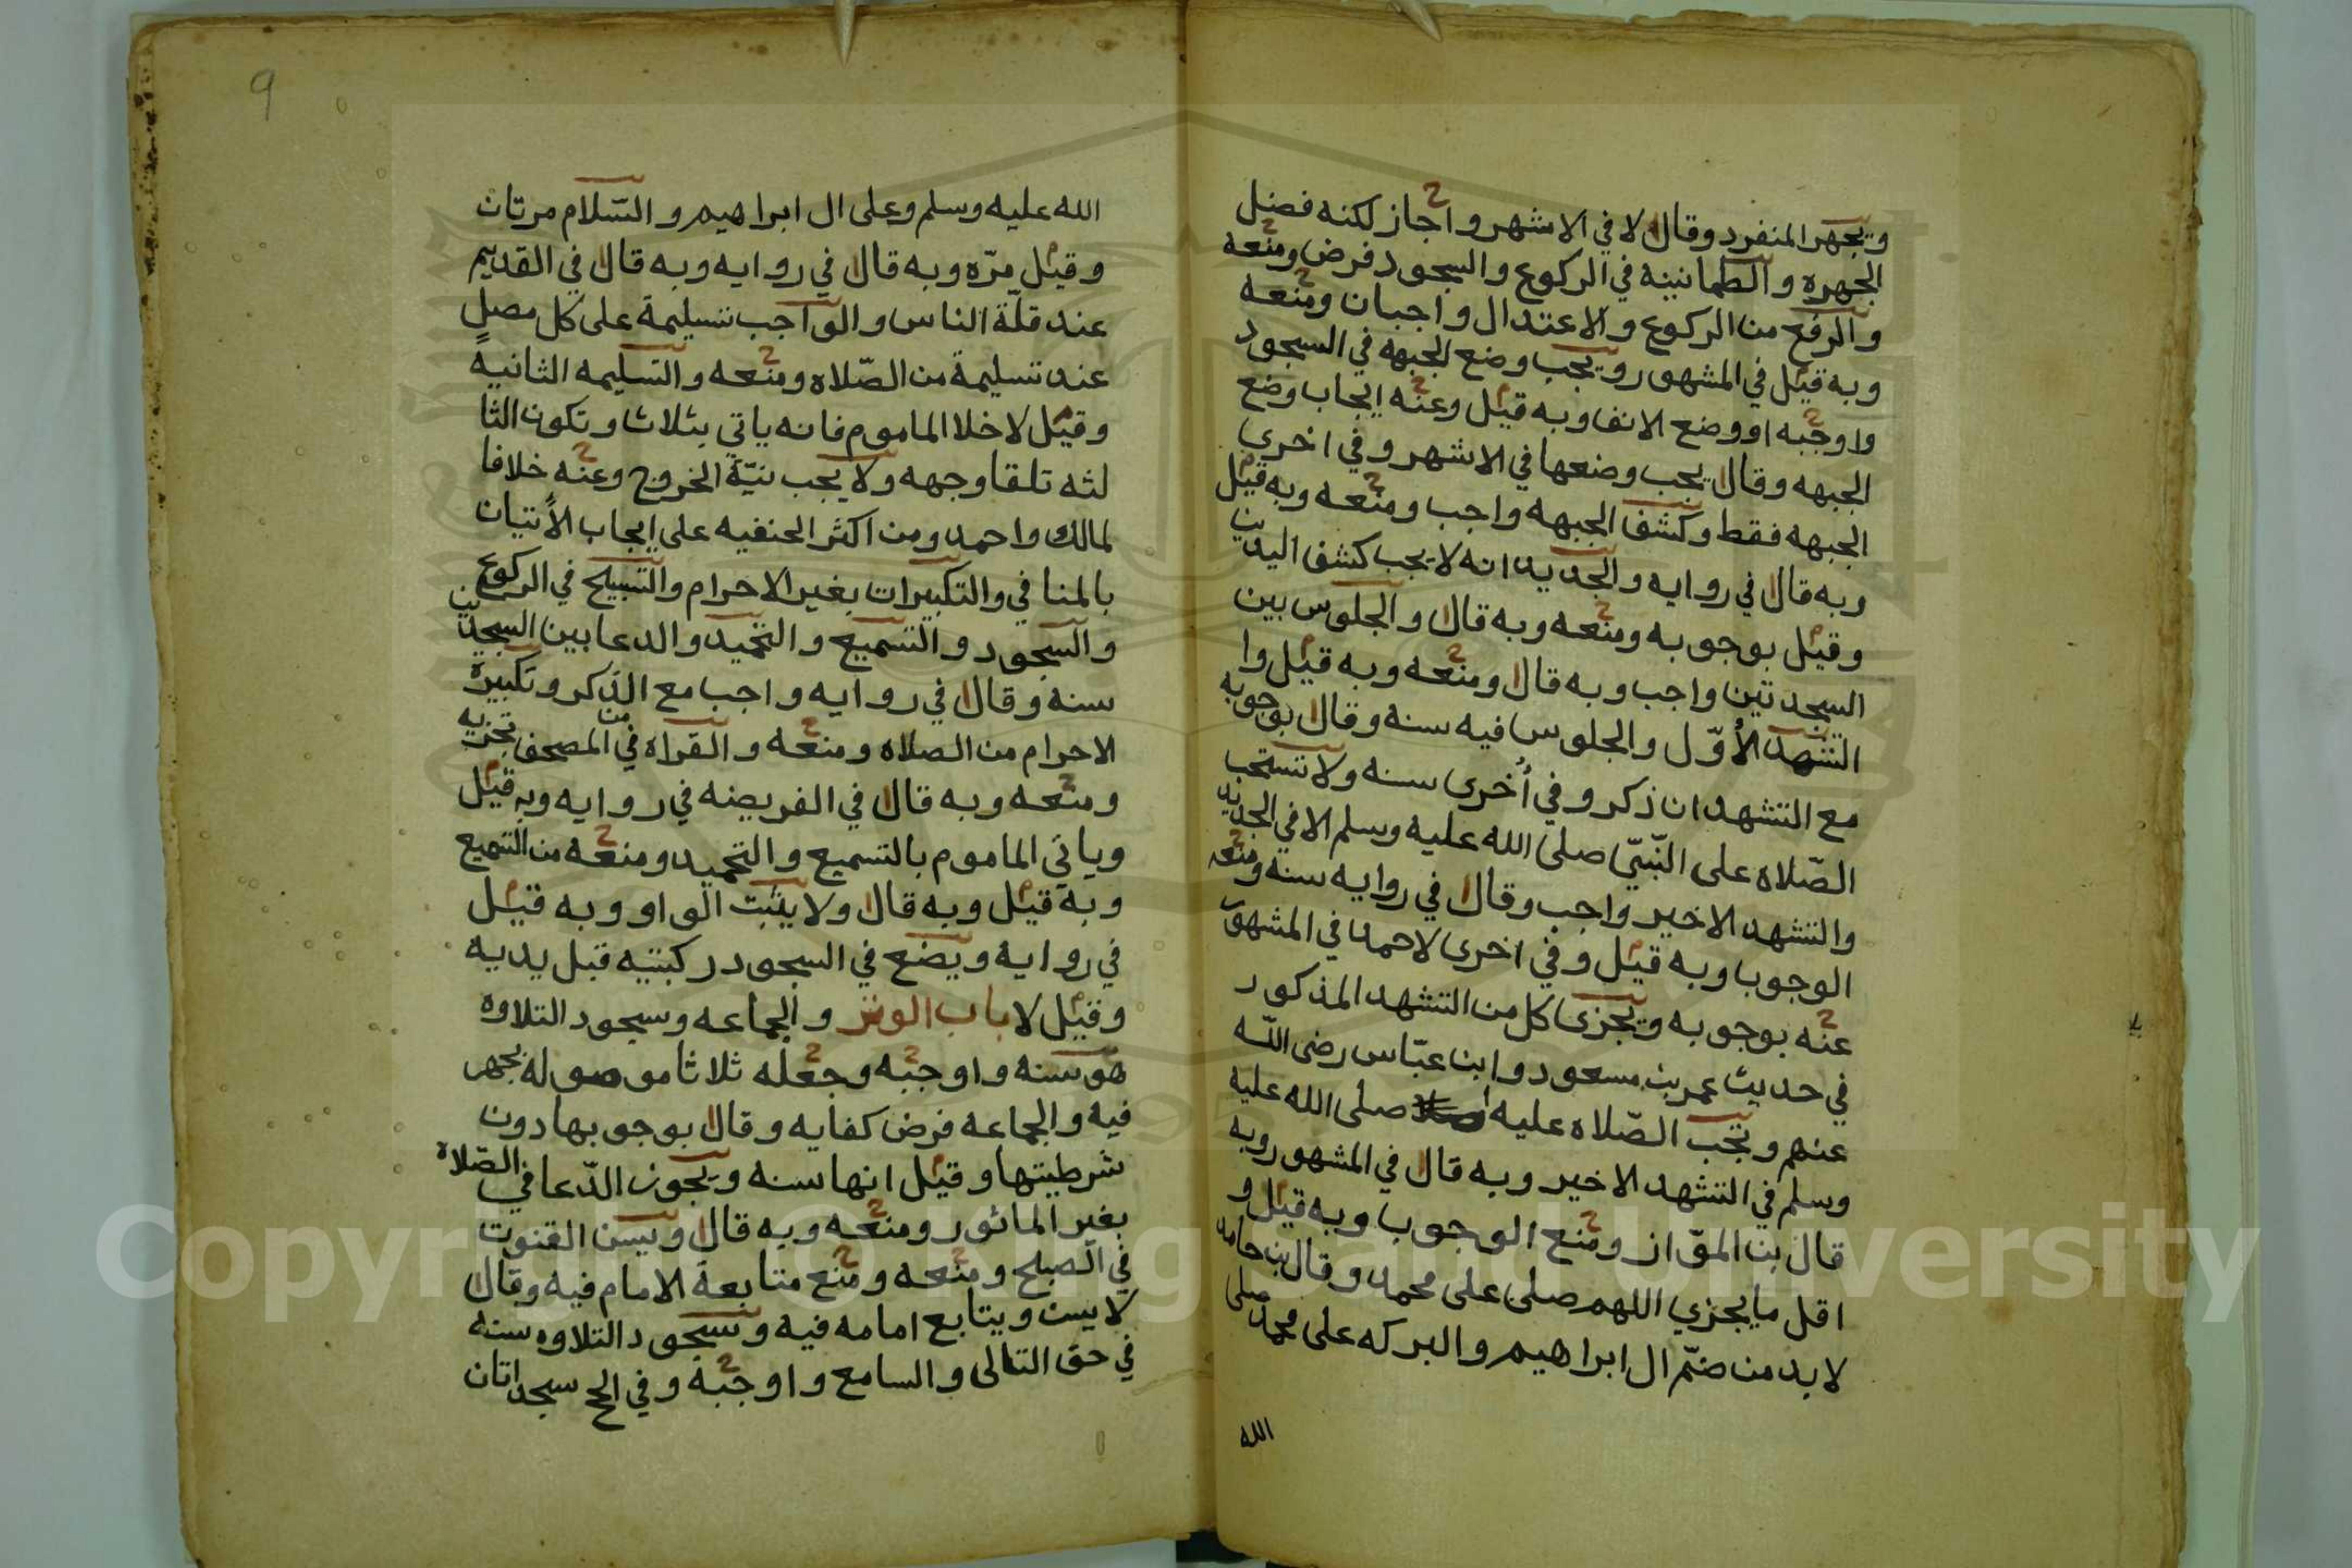 ويجهر المنفرد وقال لا في الاشهر واجاز لكنه فضل
الجهره والطمانينه في الركوع والسجود فرض ومنعه
والرفع من الركوع والاعتدال واجبان ومنعه
وبه قيل في المشهور ويجب وضع الجبهه في السجود
واوجبه او وضع الانف وبه قيل وعنه ايجاب وضع
الجبهه وقال يجب وضعها في الاشهر وفي اخرى
الجبهه فقط وكشف الجبهه واجب ومنعه وبه قيل
وبه قال في روايه والجديد انه لا يجب كشف اليدين
وقيل بوجوبه ومنعه وبه قال والجلوس بين
السجدتين واجب وبه قال ومنعه وبه قيل وا
التشهد الأوّل والجلوس فيه سنه وقال بوجوبه
مع التشهد ان ذكر وفي أُخرى سنه ولا تستحب
الصّلاه على النّبيّ صلى الله عليه وسلم الا في الجديد
والتشهد الاخير واجب وقال في روايه سنه ومنعه
الوجوب وبه قيل وفي اخرى لاحمد في المشهور
عنه بوجوبه ويجزى كل من التشهد المذكور
في حديث عمر بن مسعود وابن عبّاس رضى اللّه
عنهم وتجب الصّلاه عليه صلى الله عليه
وسلم في التشهد الاخير وبه قال في المشهور وبه
قال بن الموّاز ومنع الوجوب وبه قيل و
اقل ما يجزي اللهم صلى على محمد وقال بن حامد
لا بد من ضمّ ال ابراهيم والبركه على محمد صلى
الله
9
الله عليه وسلم وعلى ال ابراهيم والسّلام مرتان
وقيل مرّه وبه قال في روايه وبه قال في القديم
عند قلّة الناس والواجب تسليمة على كل مصلٍ
عند تسليمة من الصّلاه ومنعه والتسليمه الثانيه
وقيل لا خلا الماموم فانه ياتي بثلاث وتكون الثا
لثه تلقا وجهه ولا يجب نيّة الخروج وعنه خلافا
لمالك واحمد ومن اكثر الحنفيه على ايجاب الأتيان
بالمنافي والتكبيرات بغير الاحرام والتسبيح في الركوع
والسجود والتسميع والتحميد والدعا بين السجدتين
سنه وقال في روايه واجب مع الذكر وتكبيرة
الاحرام من الصلاه ومنعه والقراه في المصحف تجزيه
ومنعه وبه قال في الفريضه في روايه وبه قيل
وياتي الماموم بالتسميع والتحميد ومنعه من التسميع
وبه قيل وبه قال ولا يثبت الواو وبه قيل
في روايه ويضع في السجود ركبتيه قبل يديه
وقيل لا باب الوتر والجماعه وسجود التلاوه
هو سنه واوجبه وجعله ثلاثا موصوله يجهر
فيه والجماعه فرض كفايه وقال بوجوبها دون
شرطيتها وقيل انها سنه ويجوز الدّعا في الصّلاة
بغير الماثور ومنعه وبه قال ويسن القنوت
في الصبح ومنعه ومنع متابعة الامام فيه وقال
لا يسن ويتابع امامه فيه وسجود التلاوه سنه
في حق التالى والسامع واوجبه وفي الحج سجداتان
Copyright © King Saud University